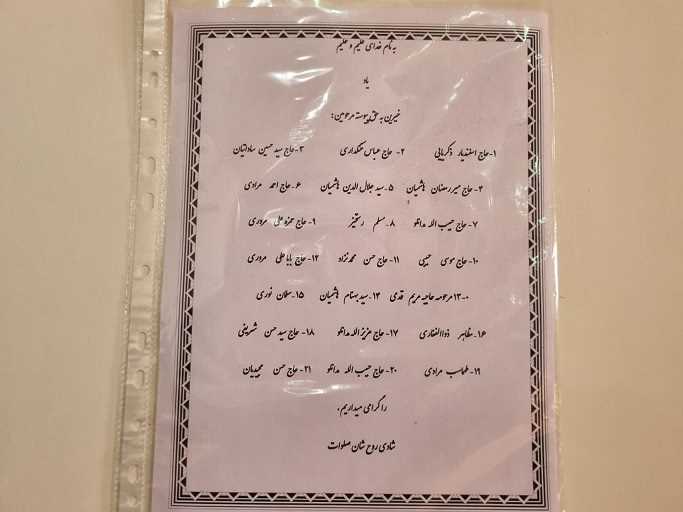 به نام خدای علیم و حلیم
یاد
خیرین به حق پیوسته مرحومین:
۱-حاج اسفندیار ذکریایی ۲- حاج عباس نمکداری ۳-حاج سید حسین ساداتیان
۴-حاج میررمضان هاشمیان ۵.سید جلال الدین هاشمیان ۶-حاج احمد مرادی
۷-حاج حبیب الله مدانلو ۸.مسلم رستخیز ۹-حاج حمزه علی مروری
۱۰-حاج موسی حبیبی ۱۱-حاج حسن محمدنژاد ۱۲-حاج باباعلی مروری
۱۳-مرحومه حاجیه مریم قدمی ۱۴.سید بهنام هاشمیان ۱۵.سلمان نوری
۱۶.مظاهر ذوالفقاری ۱۷-حاج عزیز الله مدانلو ۱۸-حاج سید حسن شریفی
۱۹-طهماسب مرادی ۲۰-حاج حبیب الله مدانلو ۲۱-حاج حسن مجیدیان
را گرامی میداریم.
شادی روح شان صلوات